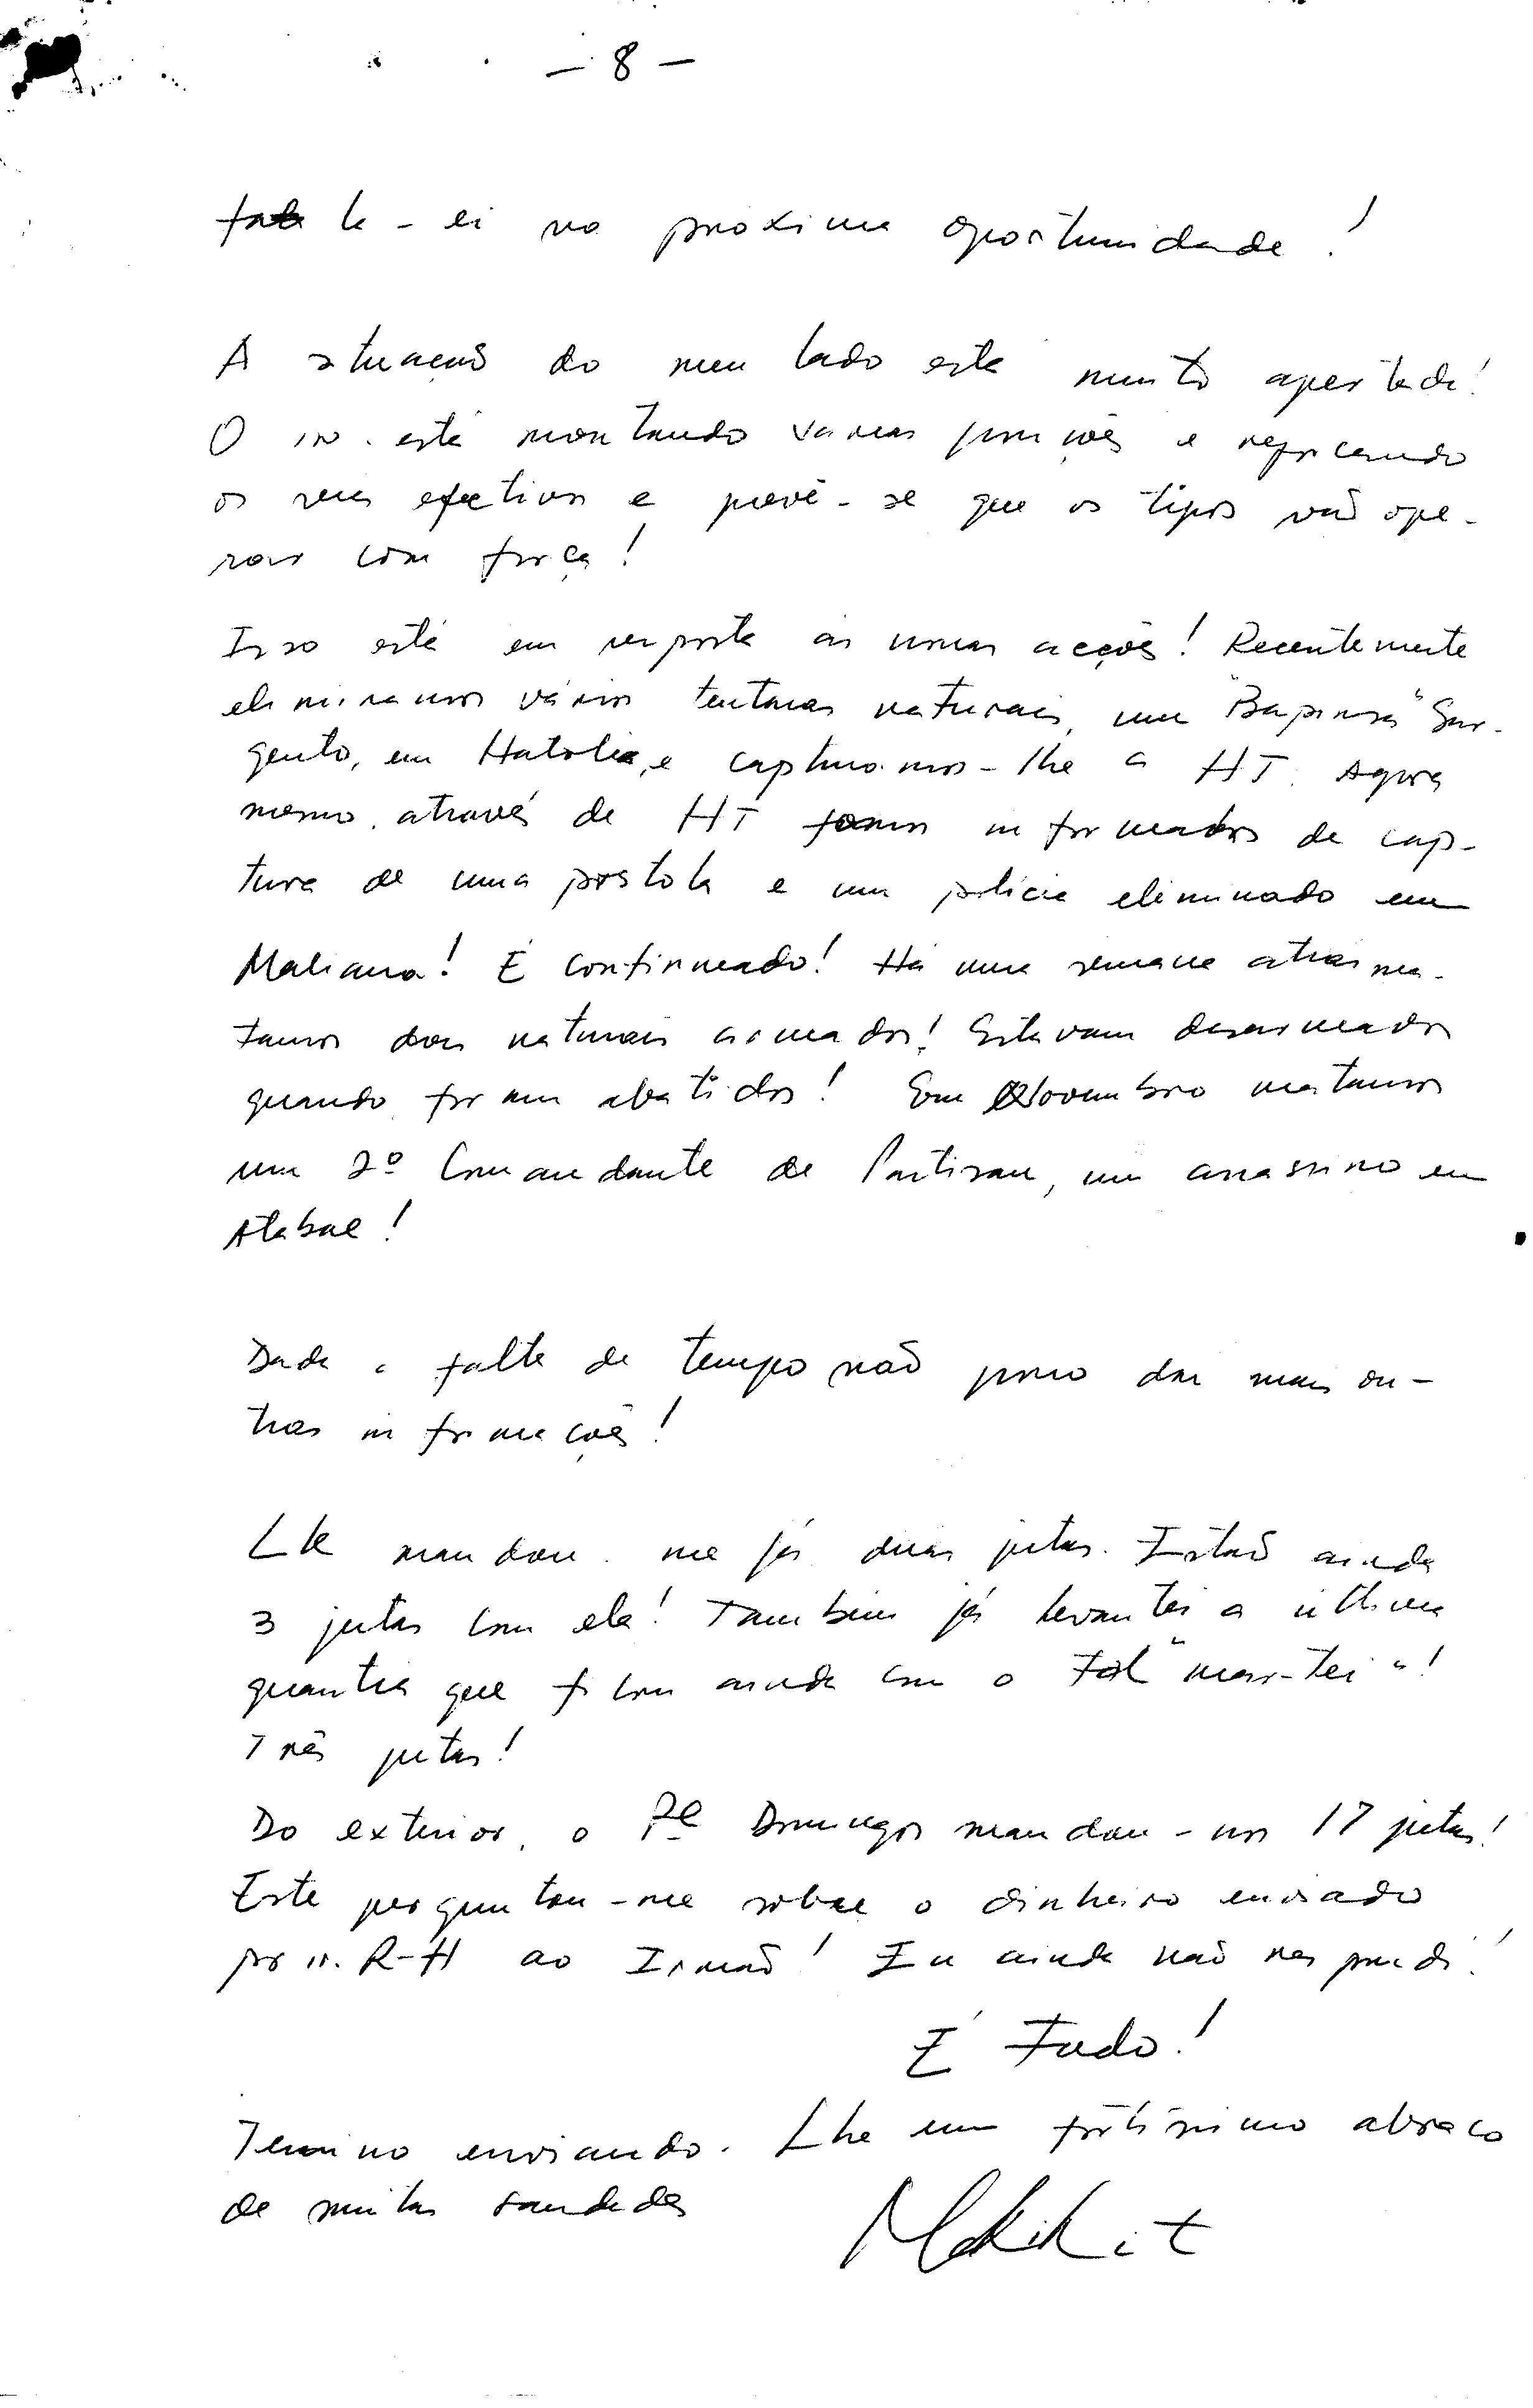 - 8 -
fala-lo-ei na proxima oportunidade!
A situação do meu lado está muito apertada!
O in. está montando varias posições e reforçando
os seus efectivos e prevê-se que os tipos vão ope-
rar com força!
Isso está em resposta ás nossas acções! Recentemente
eliminamos vários tentaras naturais, um "Bapinsa" Sar-
gento, em Hatolia, e capturamos-lhe a HT. Agora
mesmo, através de HT fomos informados de cap-
tura de uma pistola e um polícia eliminado em
Maliana! É confirmado! Há uma semana atras ma-
tamos dois naturais armados! Estavam desarmados
quando foram abatidos! Em Novembro matamos
um 2º Comandante de Partisan, um assassino em
Atabae!
Dada a falta de tempo não posso dar mais ou-
tras informações!
L k mandou-me já duas jutas. Estão ainda
3 jutas com ele! Também já levantei a última
quantia que ficou ainda com o "mar-tei"!
Três jutas!
Do exterior, o Pe Domingos mandou-nos 17 jutas!
Este perguntou-me sobre o dinheiro enviado
por R-H ao Irmão! Eu ainda não respondi!
É Tudo!
Termino enviando-Lhe um fortíssimo abraço
de muitas saudades